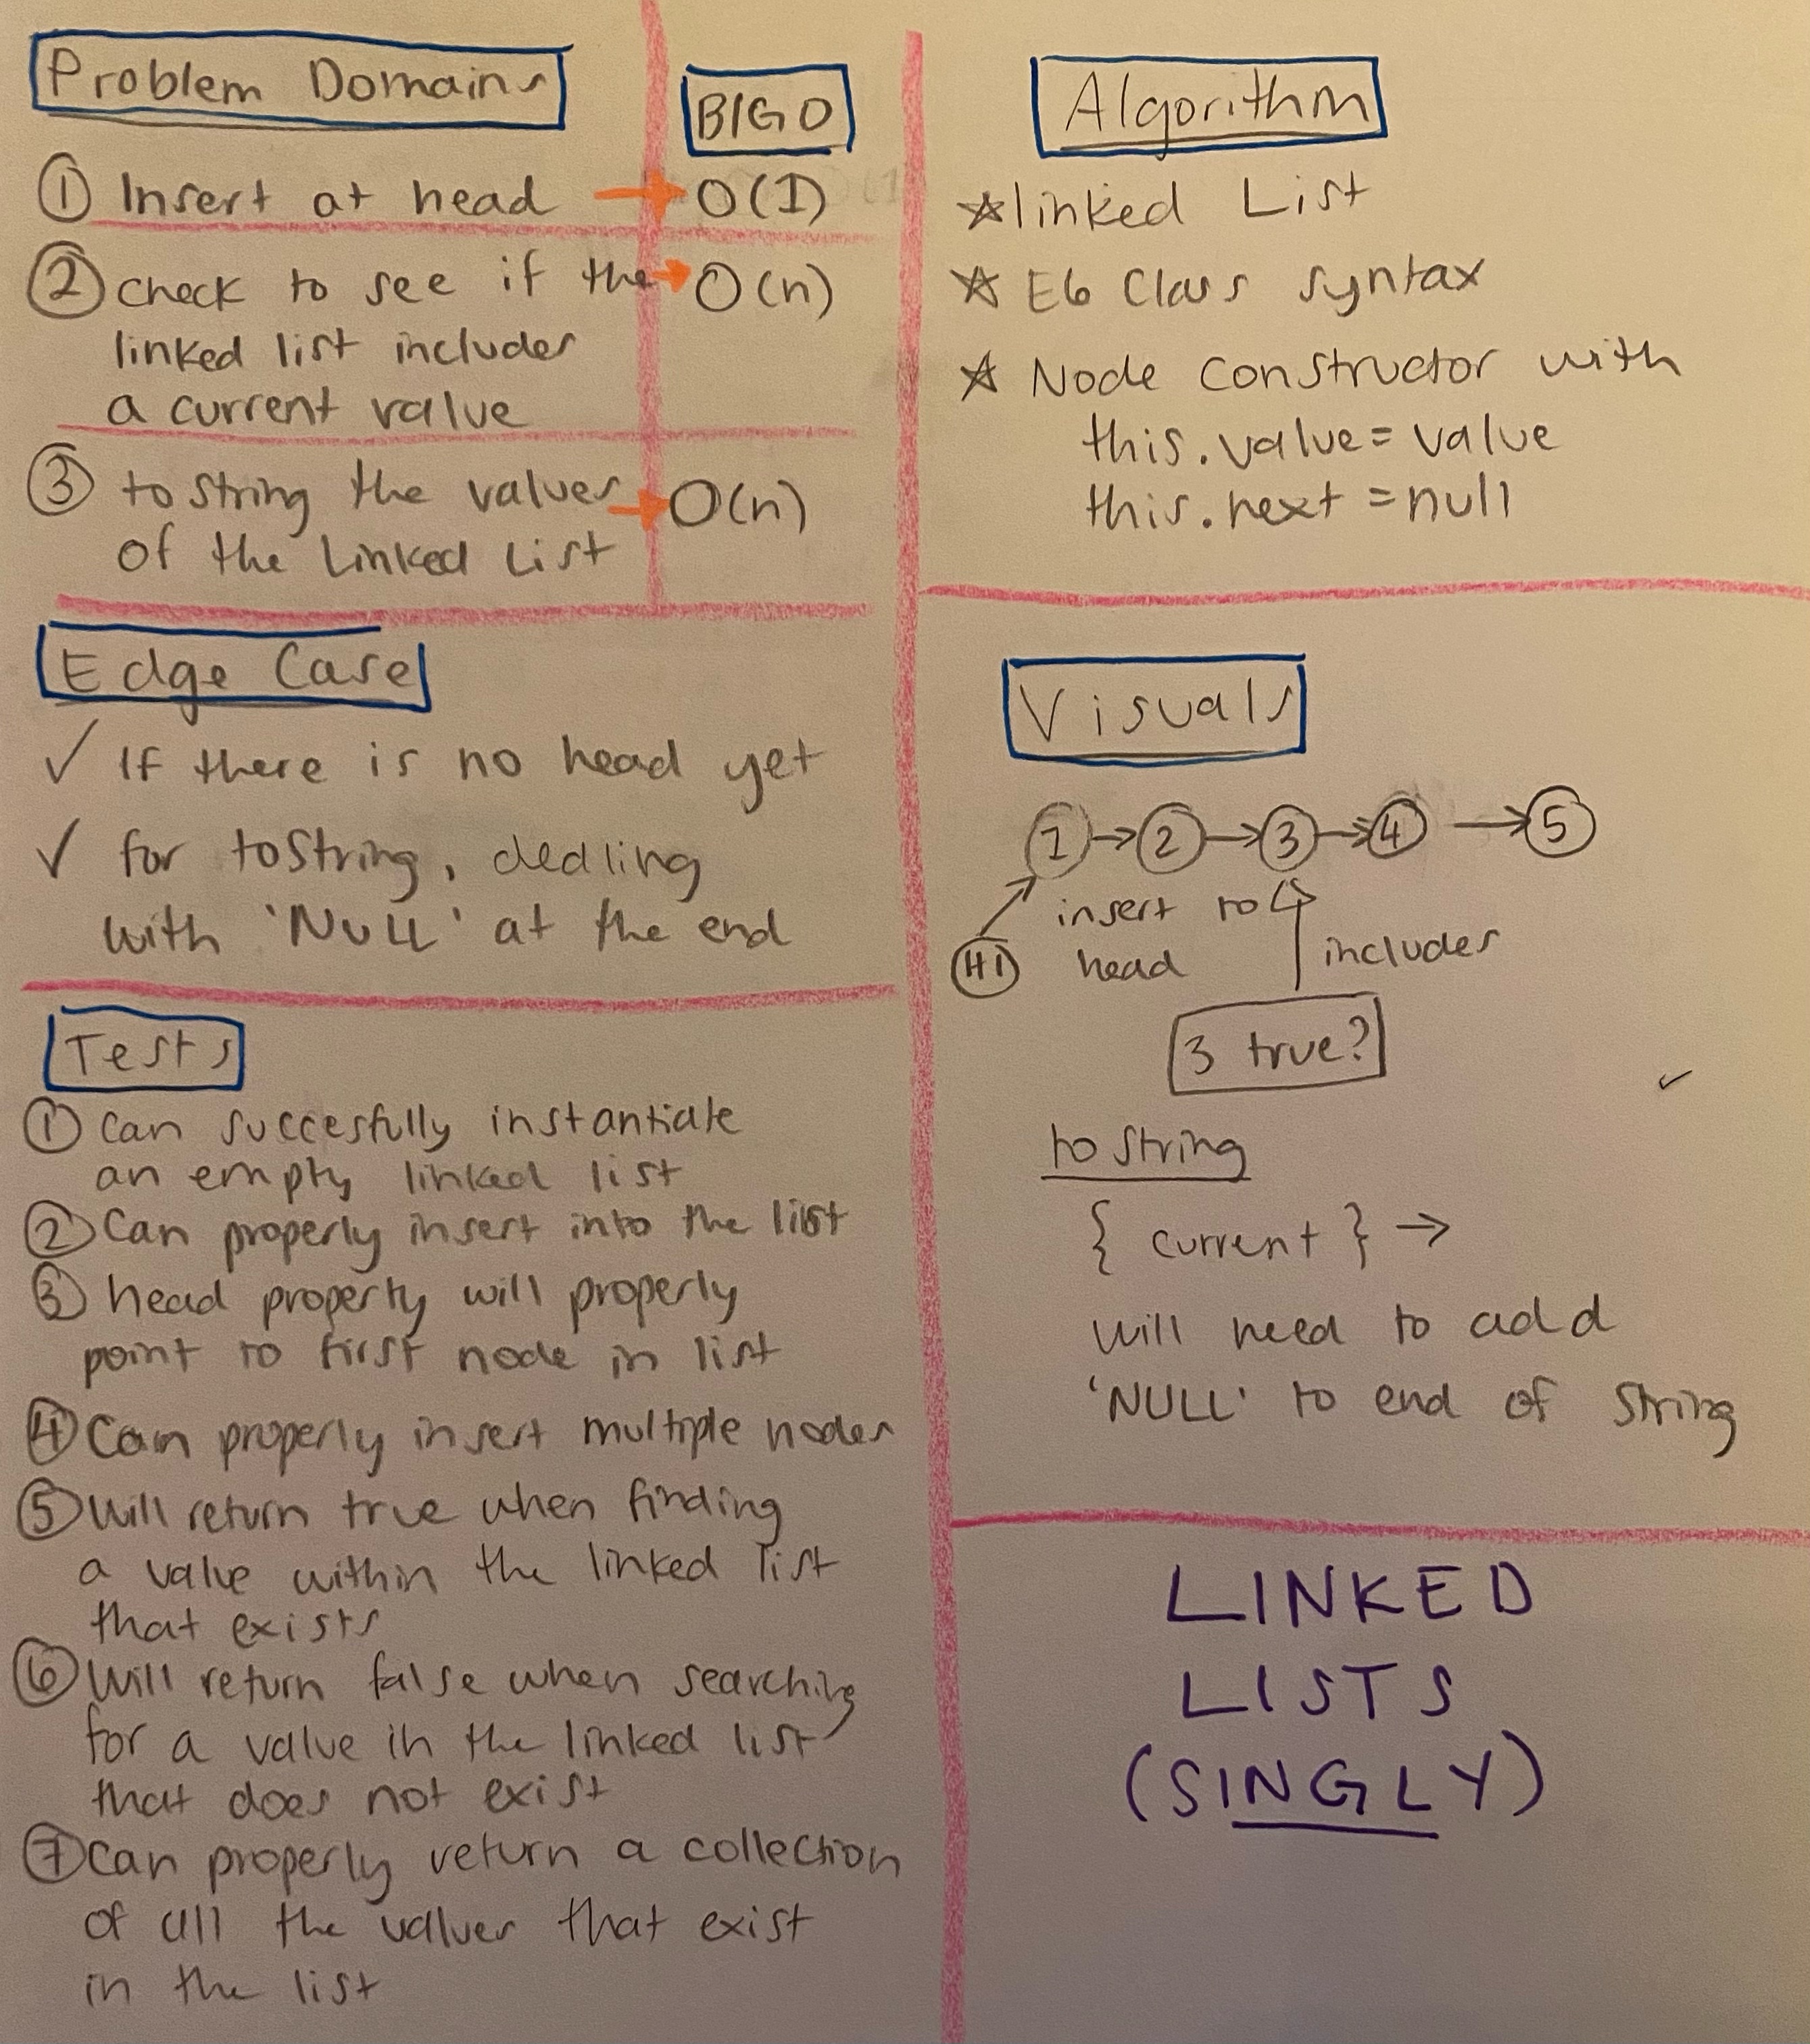 Problem Domains
BIG O
① Insert at head → O(1)
② check to see if the → O(n)
linked list includes
a current value
③ toString the values → O(n)
of the Linked List
Edge Case
✓ If there is no head yet
✓ for toString, dealing
with 'NULL' at the end
Tests
① Can succesfully instantiate
an empty linked list
② Can properly insert into the list
③ head property will properly
point to first node in list
④ Can properly insert multiple nodes
⑤ Will return true when finding
a value within the linked list
that exists
⑥ Will return false when searching
for a value in the linked list
that does not exist
⑦ Can properly return a collection
of all the values that exist
in the list
Algorithm
☆ linked List
☆ E6 Class syntax
☆ Node constructor with
this.value = value
this.next = null
Visuals
1 → 2 → 3 → 4 → 5
insert to
HI head
includes
3 true?
to string
{ current } →
will need to add
'NULL' to end of string
LINKED
LISTS
(SINGLY)